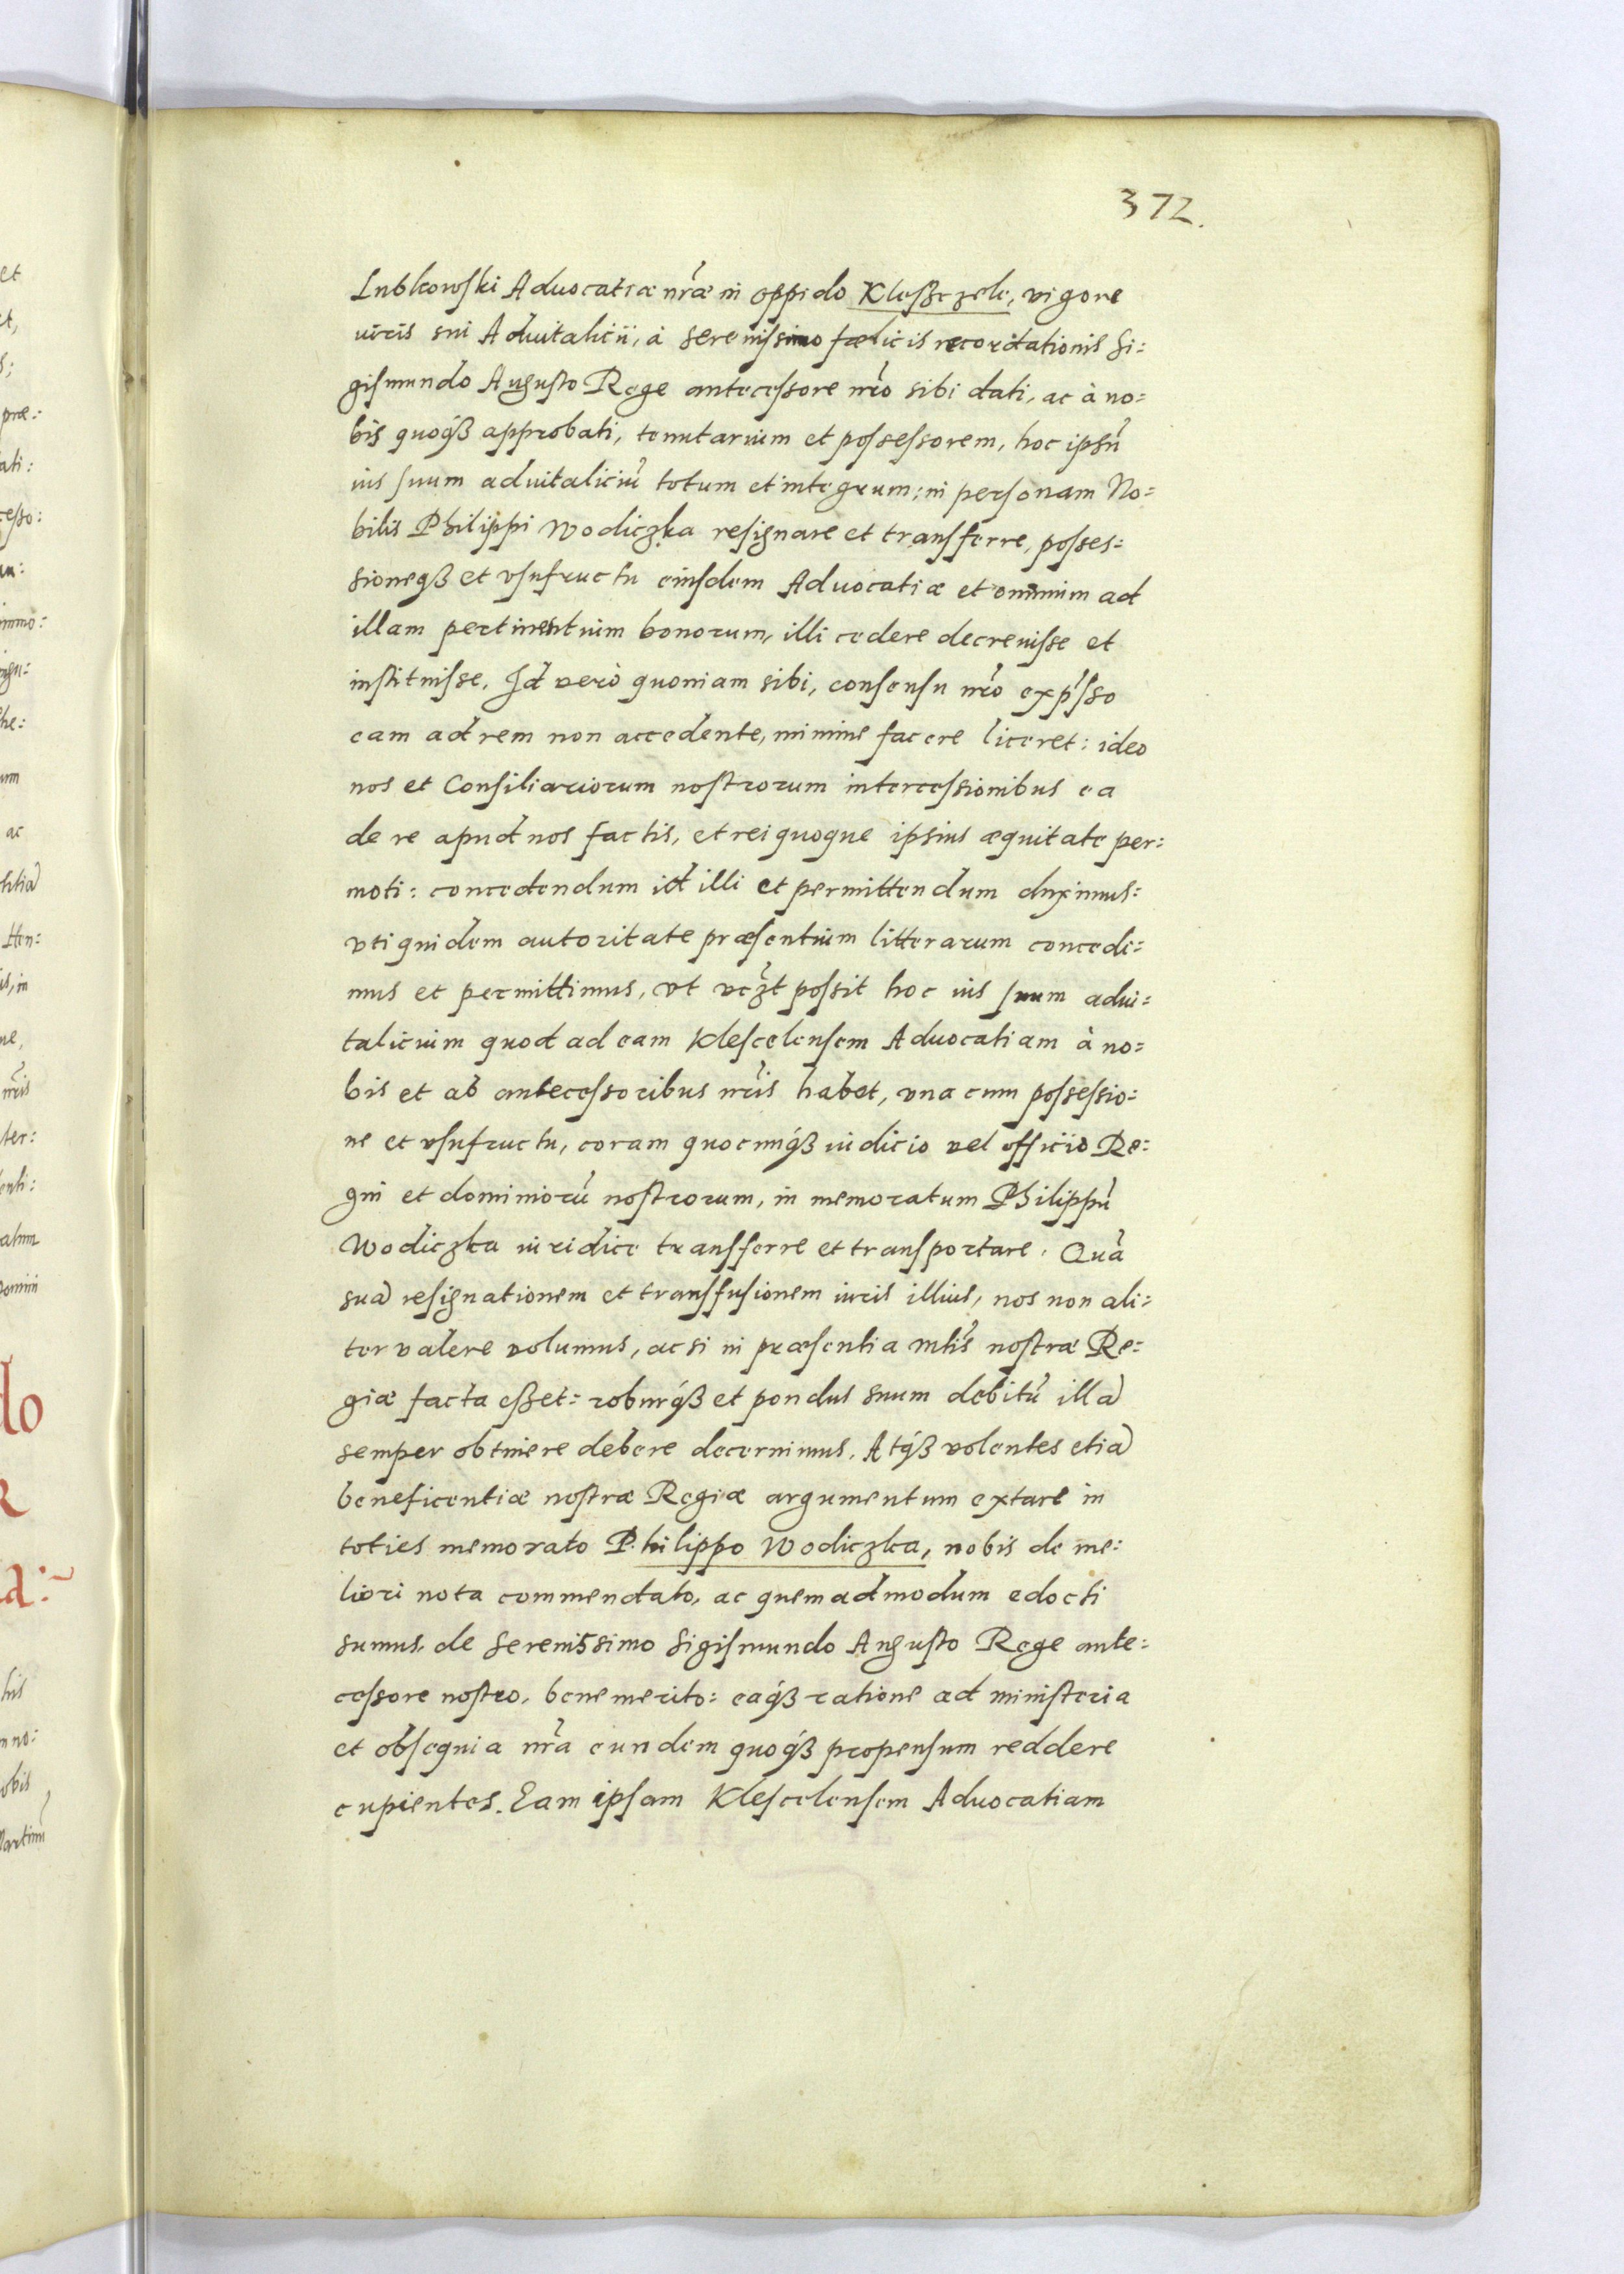 372.
Lubkowski Aduocatiæ nr̃æ in oppido Kleszczele, vigore
iuris sui Aduitalicii, à serenissimo fœlicis recordationis Si:
gismundo Augusto Rege antecessore nr̃o sibi dati, ac à no:
bis quoq́ꝫ approbati, tenutarium et possessorem, hoc ipsũ
ius suum aduitaliciũ totum et integrum; in personam No:
bilis Philippi Wodiczka resignare et transferre, posses:
sioneqꝫ et vsufructu eiusdem Aduocatiæ et omnium ad
illam pertinentium bonorum, illi cedere decreuisse et
instituisse. Id verò quoniam sibi, consensu nr̃o exp̃sso
eam ad rem non accedente, minime facere liceret: ideo
nos et Consiliariorum nostrorum intercessionibus ea
de re apud nos factis, et rei quoque ipsius æquitate per:
moti: concedendum id illi et permittendum duximus:
vti quidem autoritate præsentium litterarum concedi:
mus et permittimus, vt vcz̃t possit hoc ius suum adui:
talicium quod ad eam Klescelensem Aduocatiam à no:
bis et ab antecessoribus nr̃is habet, vna cum possessio:
ne et vsufructu, coram quocunq́ꝫ iudicio vel officio Re:
gni et dominiorũ nostrorum, in memoratum Philippũ
Wodiczka iuridice transferre et transportare. Quã
suã resignationem et transfusionem iuris illius, nos non ali:
ter valere volumus, ac si in præsentia Mtĩs nostræ Re:
giæ facta esset: roburq́ꝫ et pondus suum debitũ illã
semper obtinere debere decernimus. Atq́ꝫ volentes etiã
beneficentiæ nostræ Regiæ argumentum extare in
toties memorato Philippo Wodiczka, nobis de me:
liori nota commendato, ac quemadmodum edocti
sumus, de Serenissimo Sigismundo Augusto Rege ante:
cessore nostro, benemerito: eaq́ꝫ ratione ad ministeria
et obsequia nr̃a eundem quoq́ꝫ propensum reddere
cupientes. Eam ipsam Klescelensem Aduocatiam